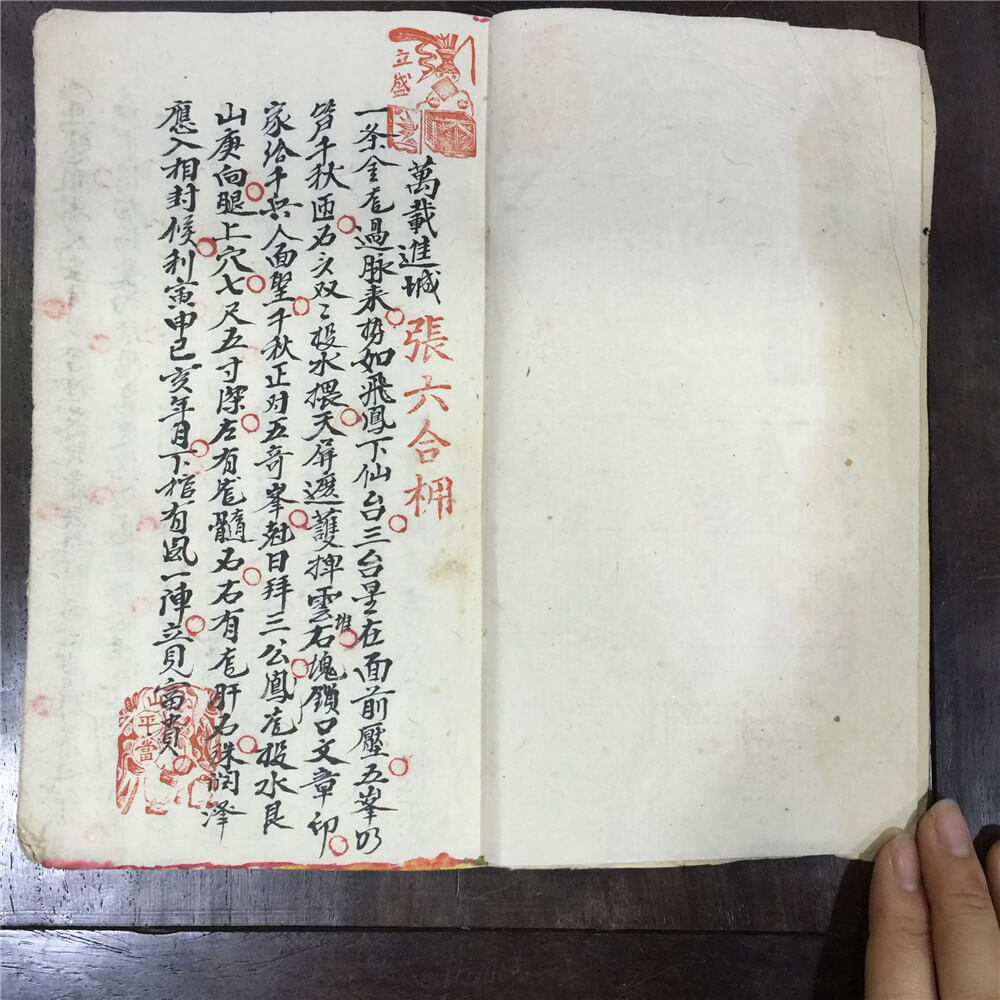 立盛
萬載進城 張六合栩
一条金龙過脉来势如飛鳳下仙台三台星在面前壓五峯乃
笋千秋迺石文双々投水攔天屏遮護捍雲石堆塊鎖口文章印
家给千兵人面堅千秋正对五奇峯魁日拜三公鳳龙投水艮
山庚向腿上穴七尺五寸深左有龙髓石右有龙肝石珠润泽
應入相封候利寅申巳亥年月下棺有風一陣立見富貴
山平當